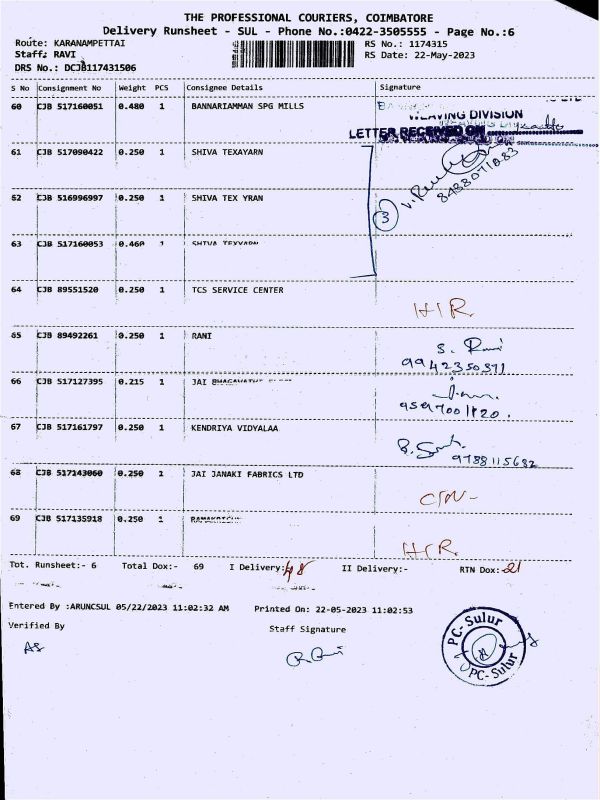 THE PROFESSIONAL COURIERS, COIMBATORE
Delivery Runsheet - SUL - Phone No.:0422-3505555 - Page No.:6
Route: KARANAMPETTAI RS No.: 1174315
Staff: RAVI RS Date: 22-May-2023
DRS No.: DCJB117431506
S No Consignment No Weight PCS Consignee Details Signature
60 CJB 517160051 0.480 1 BANNARIAMMAN SPG MILLS
WEAVING DIVISION
LETTER RECEIVED ON
61 CJB 517090422 0.250 1 SHIVA TEXAYARN
8488071883
62 CJB 516996997 0.250 1 SHIVA TEX YRAN
3
63 CJB 517160053 0.460 1 SHIVA TEXYARN
64 CJB 89551520 0.250 1 TCS SERVICE CENTER
H/R.
65 CJB 89492261 0.250 1 RANI
S. Rani
9942350371
66 CJB 517127395 0.215 1 JAI
67 CJB 517161797 0.250 1 KENDRIYA VIDYALAA
9788115682
68 CJB 517143060 0.250 1 JAI JANAKI FABRICS LTD
69 CJB 517135918 0.250 1
H/R.
Tot. Runsheet:- 6 Total Dox:- 69 I Delivery:- 48 II Delivery:- RTN Dox:- 21
Entered By :ARUNCSUL 05/22/2023 11:02:32 AM Printed On: 22-05-2023 11:02:53
Verified By Staff Signature
AS
R. Ravi
PC- Sulur
PC- Sulur